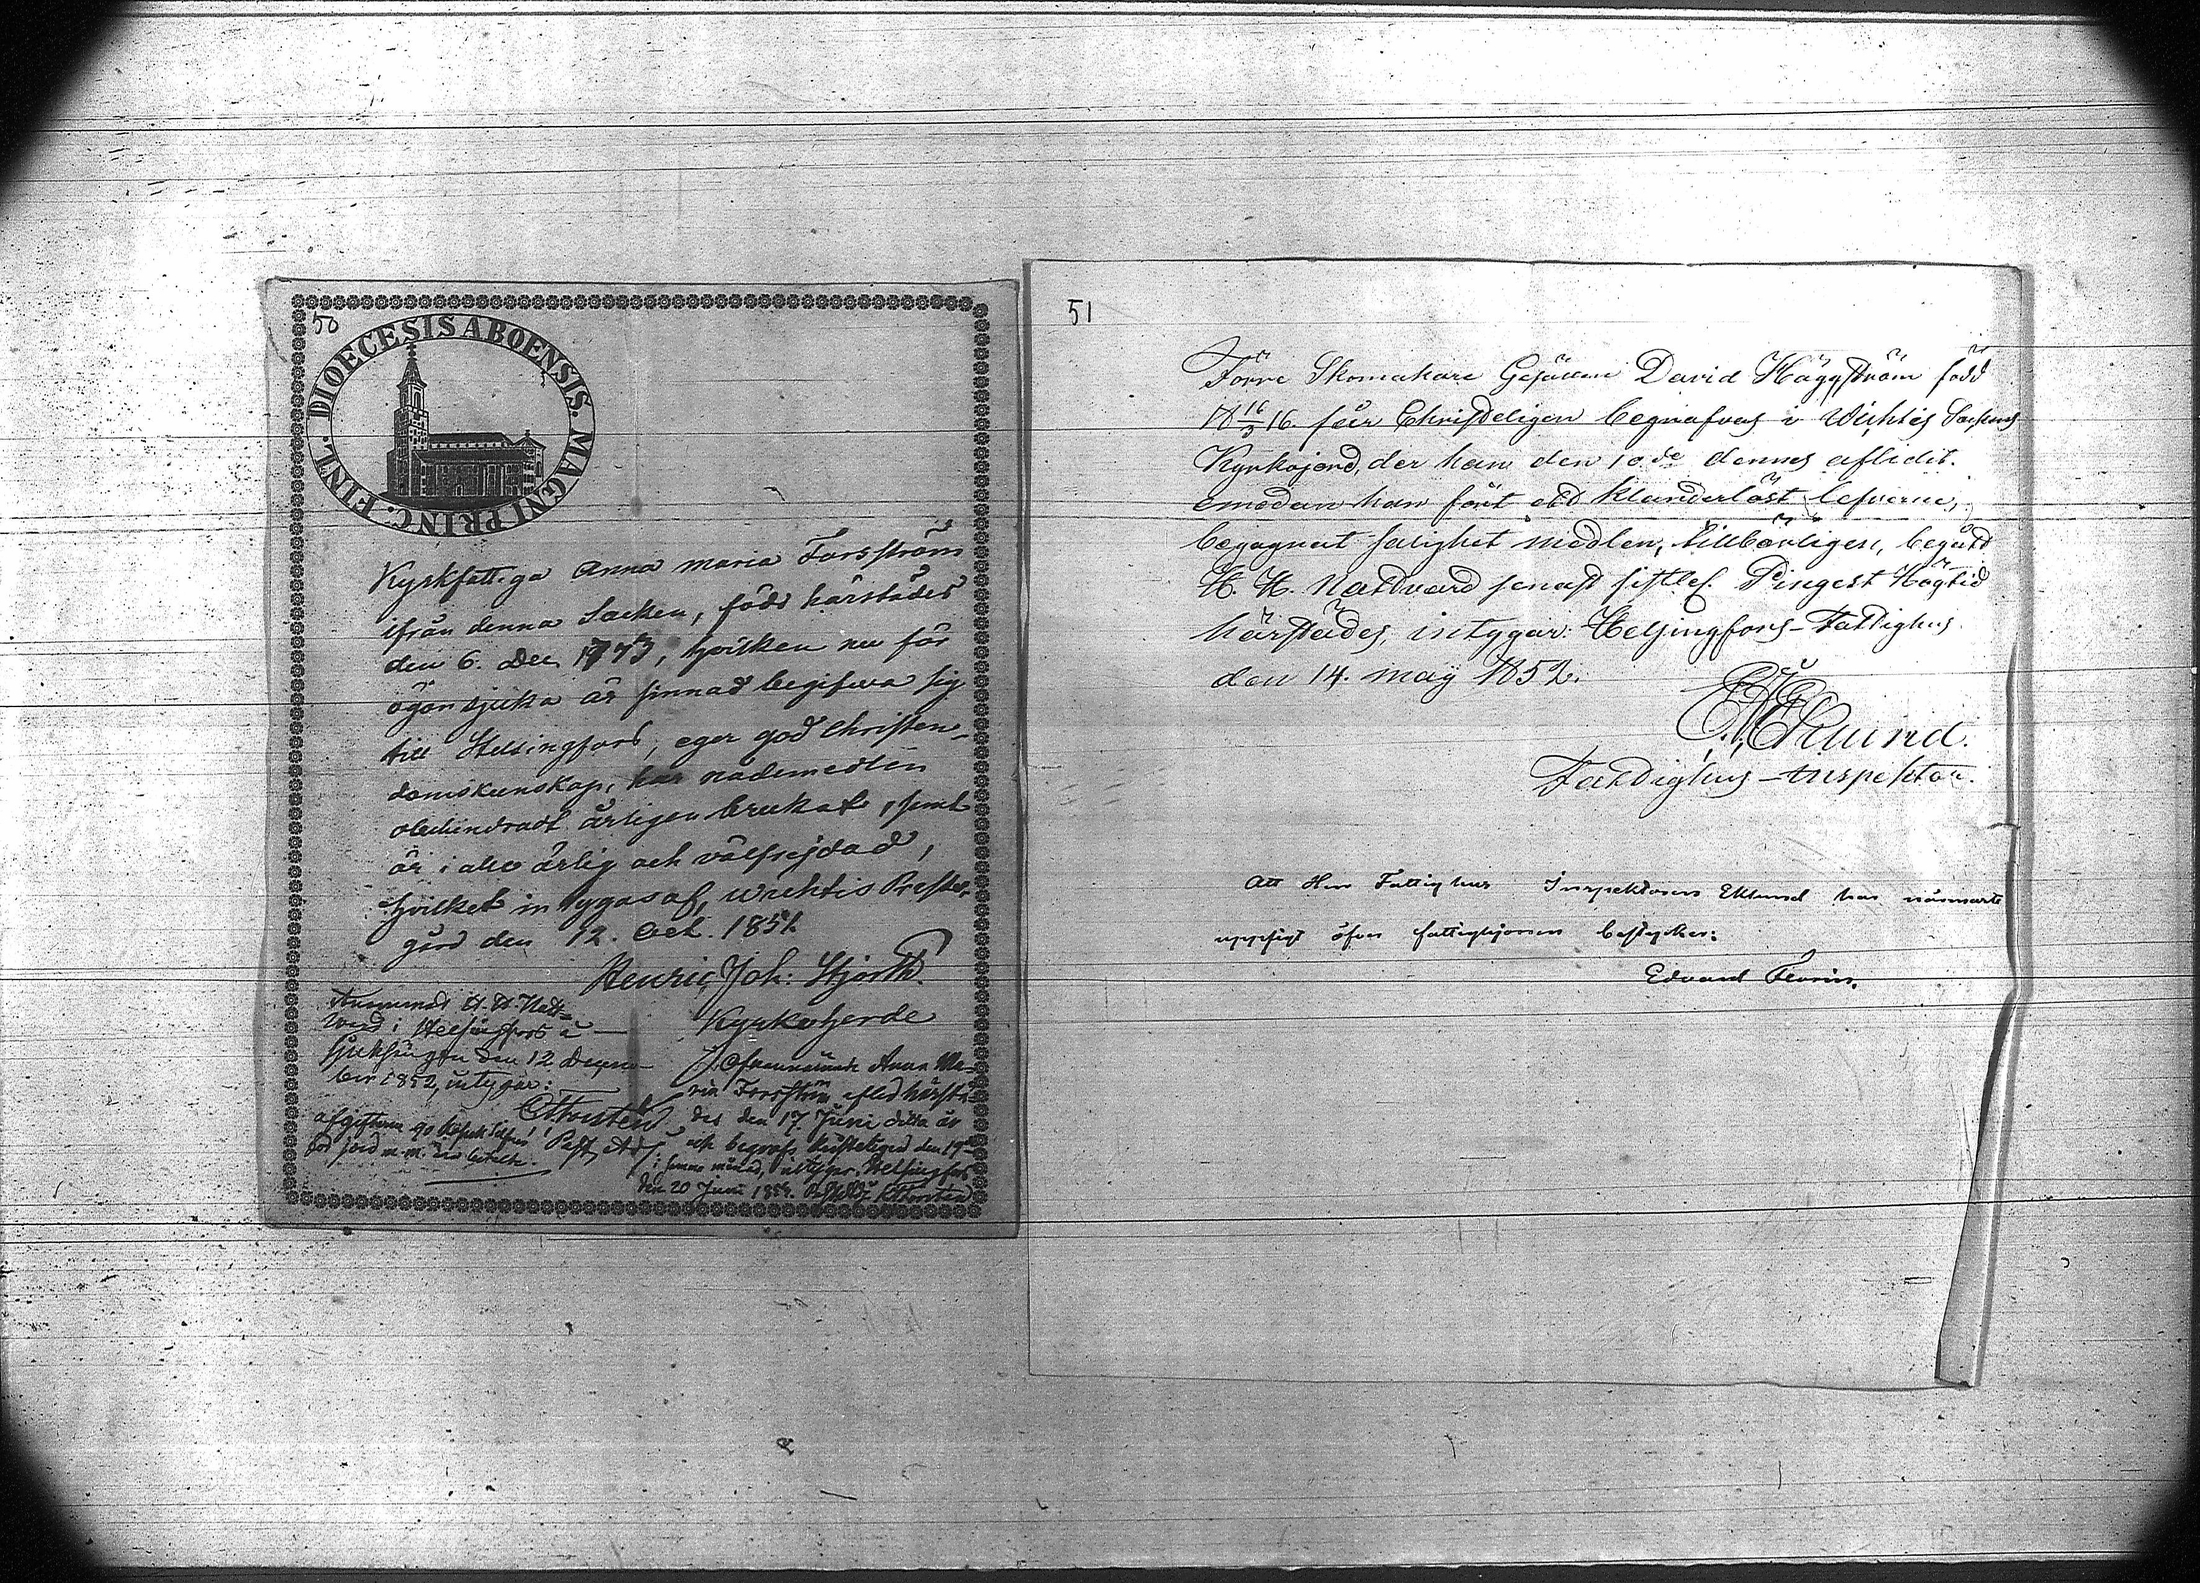 50
DIOECESIS ABOENSIS. MAGNI PRINC. FINL.
Kyrkfattiga Anna Maria Forsström
ifrån denna Socken, född härstädes
den 6. Dec. 1773, hvilken nu för
ögon sjuka är sinnad begifva sig
till Helsingfors, eger god Christen-
domskunskap, har nademedlen
obehindradt årligen brukat, samt
är i allo ärlig och välfrejdad,
hvilket intygas af, Wichtis Preste-
gård den 12. Oct. 1851.
Henric Joh: Hjorth.
Kyrkoherde
Anammat H. H. Natt-
vard i Helsingfors å
sjuksängen den 12 Decem-
ber 1852, intygar:
Past. Adj.
Ofvannämnde Anna Ma-
ria Forsström afled härstä-
des den 17 Juni detta år
och begrofs christeligen den 19de
i samma månad, intygar. Helsingfors
den 20 Juni
51
Förre Skomakare Gesällen David Häggström född
18 16/2 16 får Christeligen begrafvas i Wichtis Sockens
Kyrkojord, der han den 10de dennes aflidit.
emedan han fört ett klanderlöst lefverne,
begagnat salighets medlen, tillbörligen, begått
H. H. Nattvard senast sistl. Pingest Högtid
härstädes, intygar: Helsingfors-Fattighus
den 14. Maÿ 1852.
Eklund.
Fattighus-Inspektor.
Att Herr Fattighus Inspektoren Eklund har närmaste
uppsigt öfver fattighjonen bestyrker:
Edvard